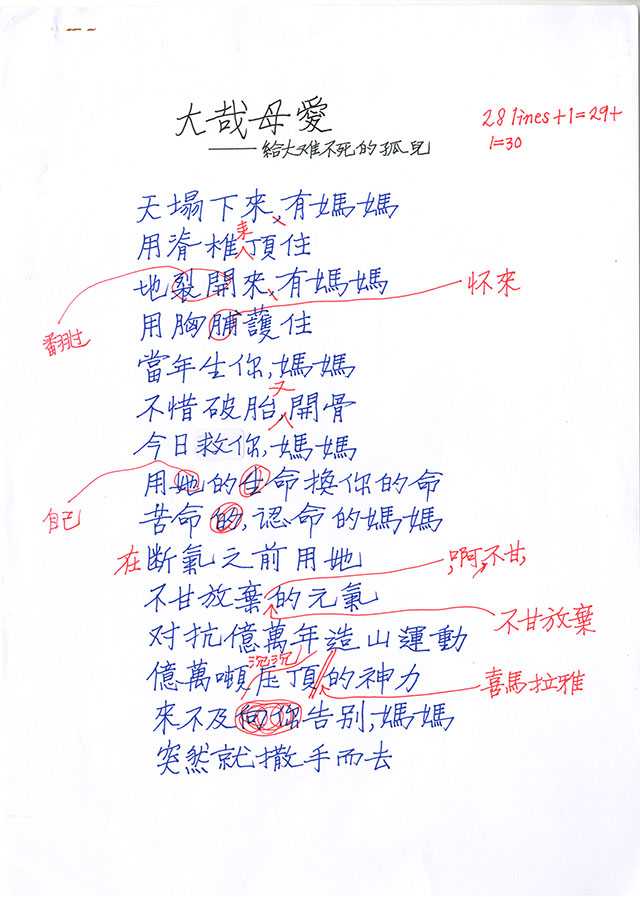 大哉母愛
28 lines + 1 = 29 +
1 = 30
——給大难不死的孤兒
天塌下來,有媽媽
來
用脊椎頂住
地裂開來,有媽媽
怀來
用胸脯護住
翻过
當年生你,媽媽
又
不惜破胎,開骨
今日救你,媽媽
用她的生命換你的命
自己
苦命的,認命的媽媽
在断氣之前用她
,啊,不甘,
不甘放棄的元氣
不甘放棄
对抗億萬年造山運動
沉沉
億萬噸压頂的神力
喜馬拉雅
來不及向你告别,媽媽
突然就撒手而去